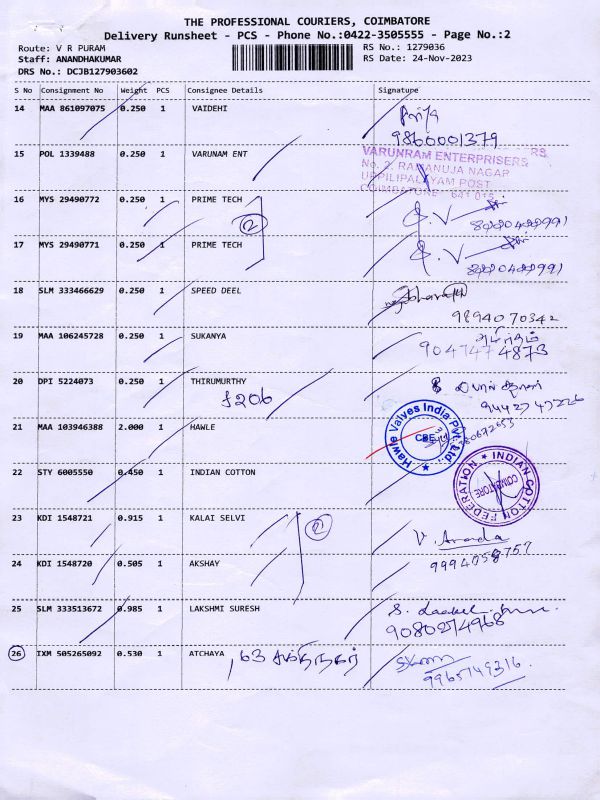 THE PROFESSIONAL COURIERS, COIMBATORE
Delivery Runsheet - PCS - Phone No.:0422-3505555 - Page No.:2
Route: V R PURAM
RS No.: 1279036
Staff: ANANDHAKUMAR
RS Date: 24-Nov-2023
DRS No.: DCJB127903602
S No Consignment No Weight PCS Consignee Details Signature
14 MAA 861097075 0.250 1 VAIDEHI
9860001379
15 POL 1339488 0.250 1 VARUNAM ENT
VARUNRAM ENTERPRISERS
No. 2, RAMANUJA NAGAR
UPPILIPALAYAM POST
COIMBATORE - 641 015
16 MYS 29490772 0.250 1 PRIME TECH
2
17 MYS 29490771 0.250 1 PRIME TECH
18 SLM 333466629 0.250 1 SPEED DEEL
9894070342
19 MAA 106245728 0.250 1 SUKANYA
9047474873
20 DPI 5224073 0.250 1 THIRUMURTHY
£206
9442747226
21 MAA 103946388 2.000 1 HAWLE
Hawle Valves India Pvt. Ltd.
CBE
22 STY 6005550 0.450 1 INDIAN COTTON
INDIAN COTTON FEDERATION
COIMBATORE
23 KDI 1548721 0.915 1 KALAI SELVI
2
V. Ananda
24 KDI 1548720 0.505 1 AKSHAY
9994058757
25 SLM 333513672 0.985 1 LAKSHMI SURESH
9080274968
26 IXM 505265092 0.530 1 ATCHAYA , 63
9965149316